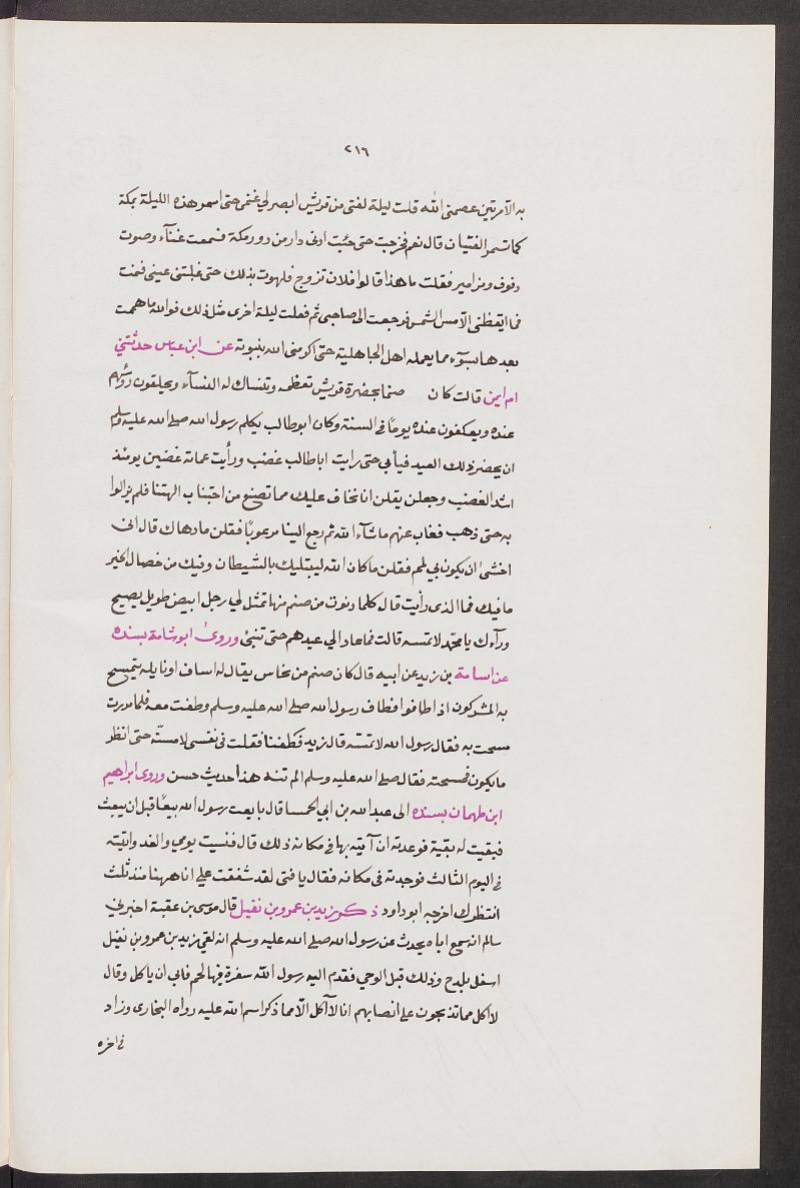 ٢١٦
به الا مرتين عصمنى الله قلت ليلة لفتى من قريش ابصر لي غنمى حتى اسمر هذه الليلة بمكة
كما تسمر الفتيان قال نعم فخرجت حتى جئت ادنى دار من دور مكة فسمعت غنآء وصوت
دفوف ومزامير فقلت ما هذا قالوا فلان تزوج فلهوت بذلك حتى غلبتنى عينى فنمت
فما ايقظنى الا مس الشمس فرجعت الى صاحبى ثم فعلت ليلة اخرى مثل ذلك فوالله ما هممت
بعدها بسوٓء مما يعمله اهل الجاهلية حتى اكرمنى الله بنبوته عن ابن عباس حدثتني
ام ايمن قالت كان صنما بحضرة قريش تعظمه وتنساك له النسآء ويحلقون رؤسهم
عنده ويعكفون عنده يوما في السنة وكان ابو طالب يكلم رسول الله صلى الله عليه وسلم
ان يحضر ذلك العيد فيأبى حتى رايت ابا طالب غضب ورأيت عماته غضبن يومئذ
اشد الغضب وجعلن يقلن انا نخاف عليك مما تصنع من اجتناب الهتنا فلم يزالوا
به حتى ذهب فغاب عنهم ما شآء الله ثم رجع الينا مرعوبا فقلن ما دهاك قال انى
اخشى ان يكون بي لمم فقلن ما كان الله ليبتليك بالشيطان وفيك من خصال الخير
ما فيك فما الذى رأيت قال كلما دنوت من صنم منها تمثل لي رجل ابيض طويل يصيح
ورآءك يا محمد لا تمسه قالت فما عاد الي عيدهم حتى تنبئ وروى ابو شامة بسنده
عن اسامة بن زيد عن ابيه قال كان صنم من نحاس يقال له اساف او نايلة يتمسح
به المشركون اذا طافوا فطاف رسول الله صلى الله عليه وسلم وطفت معه فلما مررت
مسحت به فقال رسول الله لا تمسه قال زيد فطفنا فقلت في نفسى لامسنّه حتى انظر
ما يكون فمسحته فقال صلى الله عليه وسلم الم تنه هذا حديث حسن وروى ابراهيم
ابن طهمان بسنده الى عبد الله بن ابي الحمسا قال بايعت رسول الله بيعا قبل ان يبعث
فبقيت له بقية فوعدته ان آتيه بها في مكانه ذلك قال فنسيت يومي والغد واتيته
في اليوم الثالث فوجدته في مكانه فقال يا فتى لقد شققت علي انا ههنا منذ ثلث
انتظرك اخرجه ابو داود ذكر زيد بن عمرو بن نفيل قال موسى بن عقبة اخبرني
سالم انه سمع اباه يحدث عن رسول الله صلى الله عليه وسلم انه لقي زيد بن عمرو بن نفيل
اسفل بلدح وذلك قبل الوحي فقدم اليه رسول الله سفرة فيها لحم فابى ان ياكل وقال
لا اكل مما تذبحون على انصابهم انا لا آكل الا مما ذكر اسم الله عليه رواه البخارى وزاد
في اخره